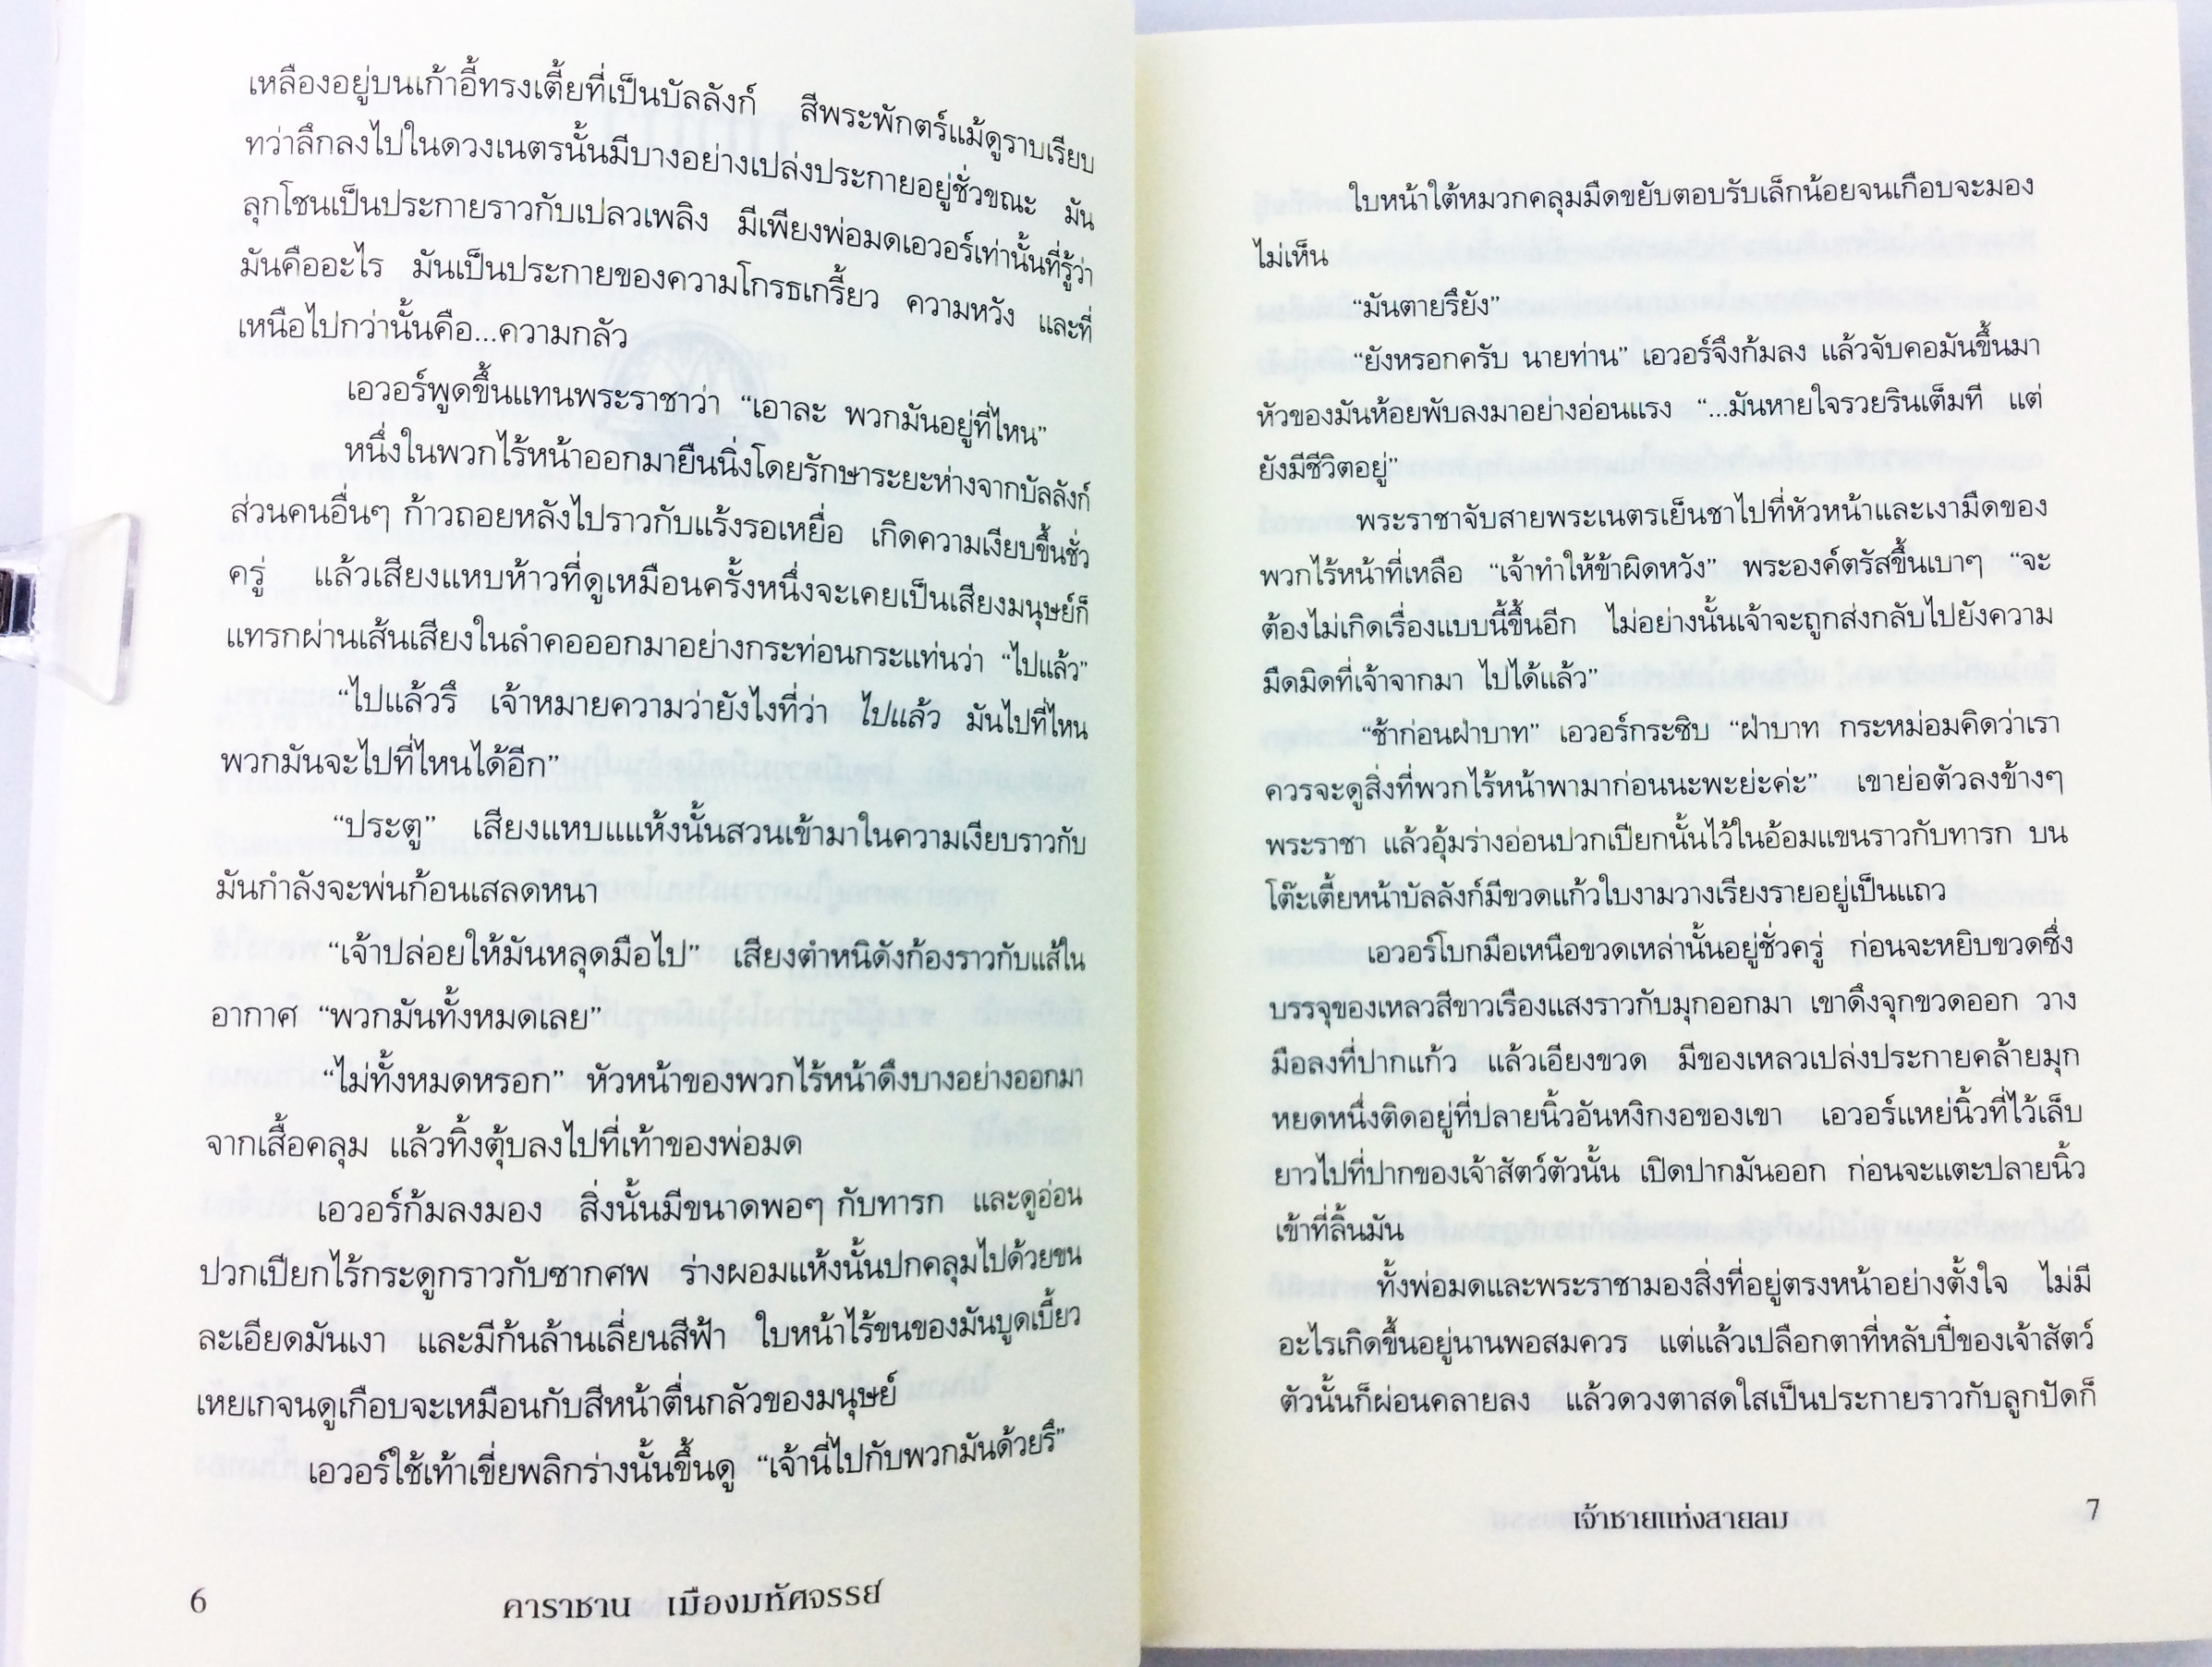 เหลืองอยู่บนเก้าอี้ทรงเตี้ยที่เป็นบัลลังก์ สีพระพักตร์แม้ดูราบเรียบ
ทว่าลึกลงไปในดวงเนตรนั้นมีบางอย่างเปล่งประกายอยู่ชั่วขณะ มัน
ลุกโชนเป็นประกายราวกับเปลวเพลิง มีเพียงพ่อมดเอวอร์เท่านั้นที่รู้ว่า
มันคืออะไร มันเป็นประกายของความโกรธเกรี้ยว ความหวัง และที่
เหนือไปกว่านั้นคือ...ความกลัว
เอวอร์พูดขึ้นแทนพระราชาว่า “เอาละ พวกมันอยู่ที่ไหน”
หนึ่งในพวกไร้หน้าออกมายืนนิ่งโดยรักษาระยะห่างจากบัลลังก์
ส่วนคนอื่นๆ ก้าวถอยหลังไปราวกับแร้งรอเหยื่อ เกิดความเงียบขึ้นชั่ว
ครู่ แล้วเสียงแหบห้าวที่ดูเหมือนครั้งหนึ่งจะเคยเป็นเสียงมนุษย์ก็
แทรกผ่านเส้นเสียงในลำคอออกมาอย่างกระท่อนกระแท่นว่า “ไปแล้ว”
“ไปแล้วรึ เจ้าหมายความว่ายังไงที่ว่า ไปแล้ว มันไปที่ไหน
พวกมันจะไปที่ไหนได้อีก”
“ประตู” เสียงแหบแแห้งนั้นสวนเข้ามาในความเงียบราวกับ
มันกำลังจะพ่นก้อนเสลดหนา
“เจ้าปล่อยให้มันหลุดมือไป” เสียงตำหนิดังก้องราวกับแส้ใน
อากาศ “พวกมันทั้งหมดเลย”
“ไม่ทั้งหมดหรอก” หัวหน้าของพวกไร้หน้าดึงบางอย่างออกมา
จากเสื้อคลุม แล้วทิ้งตุ้บลงไปที่เท้าของพ่อมด
เอวอร์ก้มลงมอง สิ่งนั้นมีขนาดพอๆ กับทารก และดูอ่อน
ปวกเปียกไร้กระดูกราวกับซากศพ ร่างผอมแห้งนั้นปกคลุมไปด้วยขน
ละเอียดมันเงา และมีก้นล้านเลี่ยนสีฟ้า ใบหน้าไร้ขนของมันบูดเบี้ยว
เหยเกจนดูเกือบจะเหมือนกับสีหน้าตื่นกลัวของมนุษย์
เอวอร์ใช้เท้าเขี่ยพลิกร่างนั้นขึ้นดู “เจ้านี่ไปกับพวกมันด้วยรึ”
6 คาราซาน เมืองมหัศจรรย์
ใบหน้าใต้หมวกคลุมมืดขยับตอบรับเล็กน้อยจนเกือบจะมอง
ไม่เห็น
“มันตายรึยัง”
“ยังหรอกครับ นายท่าน” เอวอร์จึงก้มลง แล้วจับคอมันขึ้นมา
หัวของมันห้อยพับลงมาอย่างอ่อนแรง “...มันหายใจรวยรินเต็มที แต่
ยังมีชีวิตอยู่”
พระราชาจับสายพระเนตรเย็นชาไปที่หัวหน้าและเงามืดของ
พวกไร้หน้าที่เหลือ “เจ้าทำให้ข้าผิดหวัง” พระองค์ตรัสขึ้นเบาๆ “จะ
ต้องไม่เกิดเรื่องแบบนี้ขึ้นอีก ไม่อย่างนั้นเจ้าจะถูกส่งกลับไปยังความ
มืดมิดที่เจ้าจากมา ไปได้แล้ว”
“ช้าก่อนฝ่าบาท” เอวอร์กระซิบ “ฝ่าบาท กระหม่อมคิดว่าเรา
ควรจะดูสิ่งที่พวกไร้หน้าพามาก่อนนะพะย่ะค่ะ” เขาย่อตัวลงข้างๆ
พระราชา แล้วอุ้มร่างอ่อนปวกเปียกนั้นไว้ในอ้อมแขนราวกับทารก บน
โต๊ะเตี้ยหน้าบัลลังก์มีขวดแก้วใบงามวางเรียงรายอยู่เป็นแถว
เอวอร์โบกมือเหนือขวดเหล่านั้นอยู่ชั่วครู่ ก่อนจะหยิบขวดซึ่ง
บรรจุของเหลวสีขาวเรืองแสงราวกับมุกออกมา เขาดึงจุกขวดออก วาง
มือลงที่ปากแก้ว แล้วเอียงขวด มีของเหลวเปล่งประกายคล้ายมุก
หยดหนึ่งติดอยู่ที่ปลายนิ้วอันหงิกงอของเขา เอวอร์แหย่นิ้วที่ไว้เล็บ
ยาวไปที่ปากของเจ้าสัตว์ตัวนั้น เปิดปากมันออก ก่อนจะแตะปลายนิ้ว
เข้าที่ลิ้นมัน
ทั้งพ่อมดและพระราชามองสิ่งที่อยู่ตรงหน้าอย่างตั้งใจ ไม่มี
อะไรเกิดขึ้นอยู่นานพอสมควร แต่แล้วเปลือกตาที่หลับปี๋ของเจ้าสัตว์
ตัวนั้นก็ผ่อนคลายลง แล้วดวงตาสดใสเป็นประกายราวกับลูกปัดก็
เจ้าชายแห่งสายลม 7